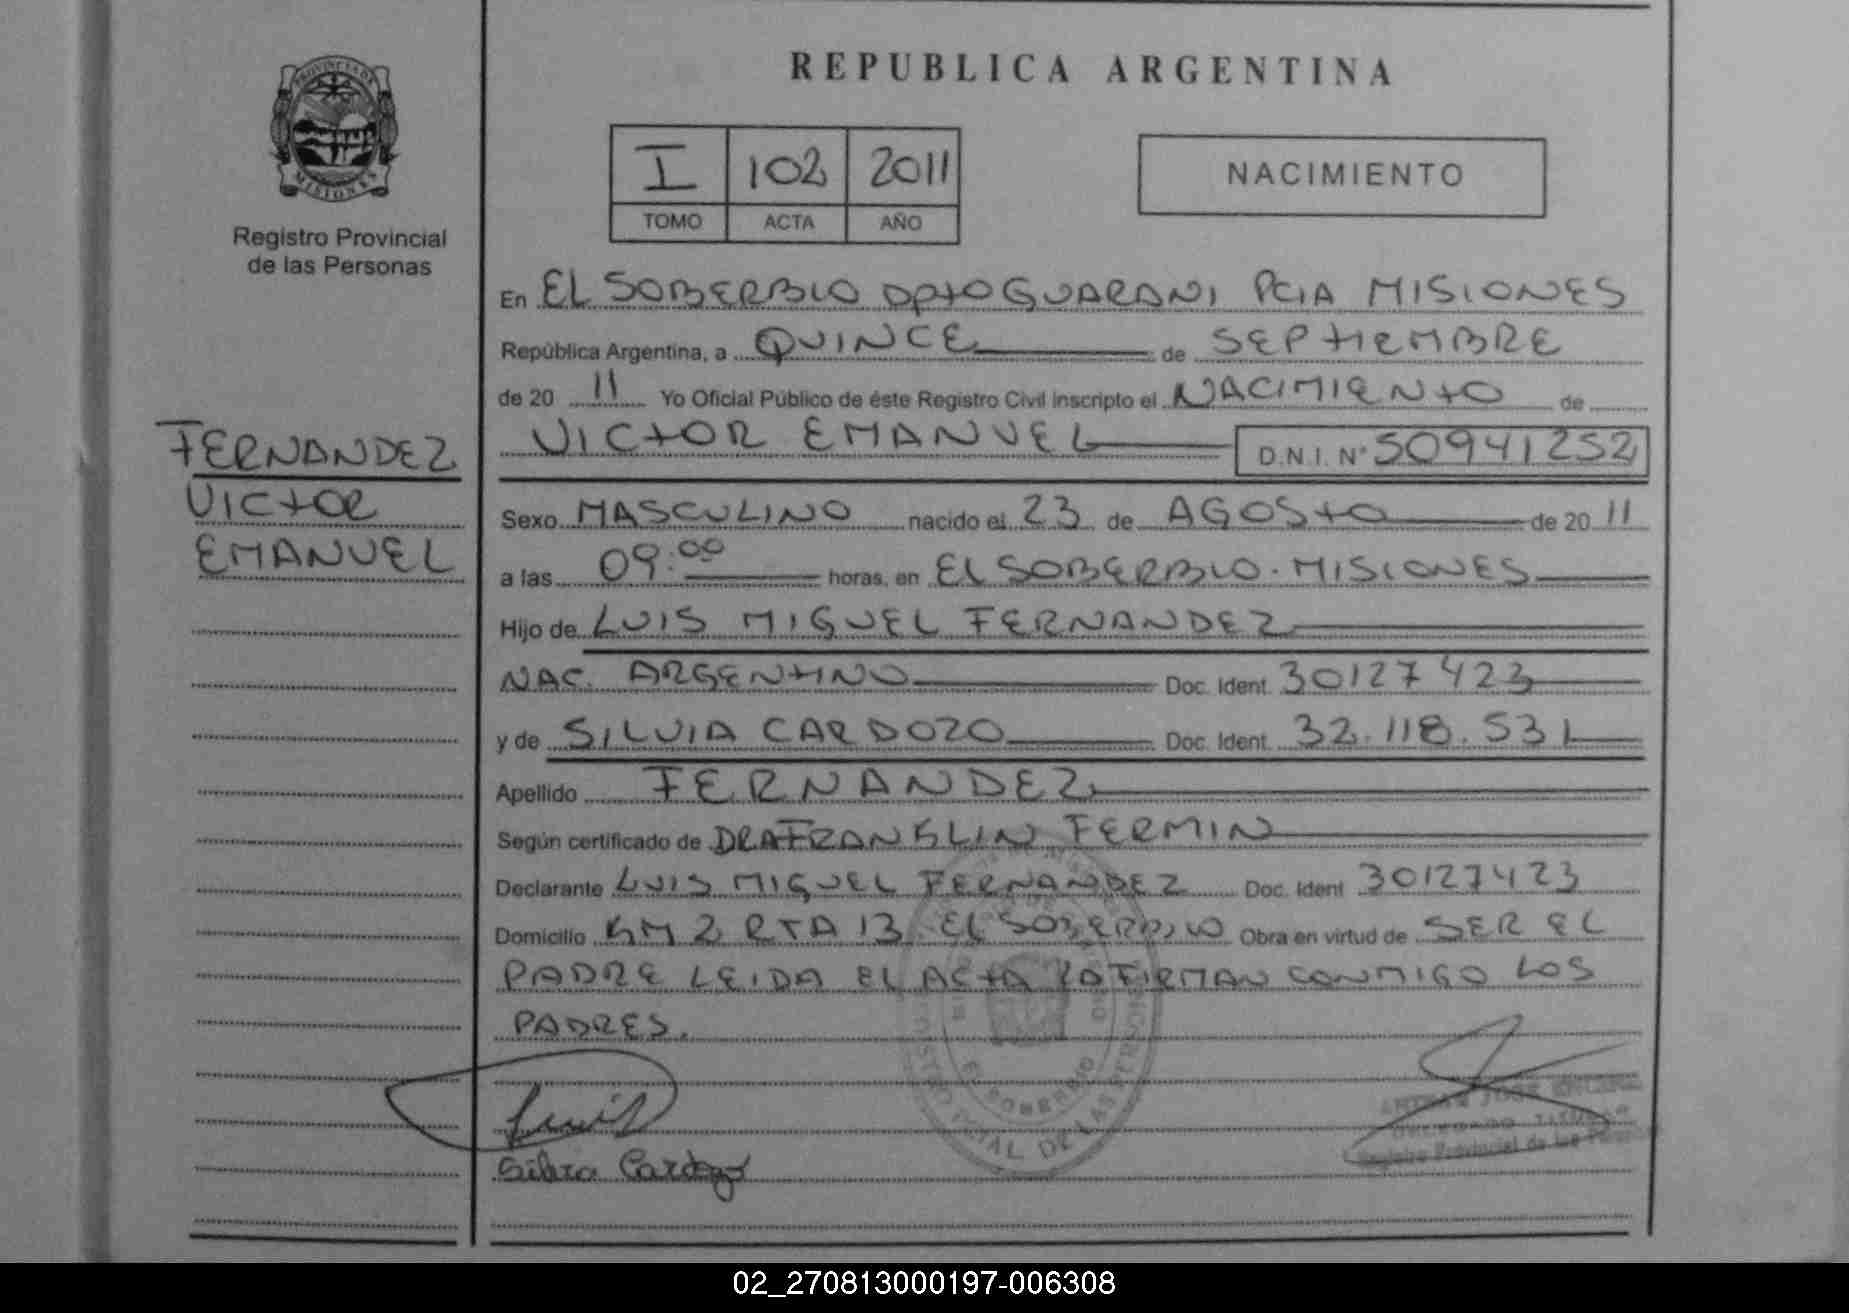 PROVINCIA DE
MISIONES
Registro Provincial
de las Personas
FERNANDEZ
VICTOR
EMANUEL
REPUBLICA ARGENTINA
I 102 2011
TOMO ACTA AÑO
NACIMIENTO
En EL SOBERBIO DPTO GUARANI PCIA MISIONES
República Argentina, a QUINCE de SEPTIEMBRE
de 20 11 Yo Oficial Público de éste Registro Civil inscripto el NACIMIENTO de
VICTOR EMANUEL D.N.I. N° 50941252
Sexo MASCULINO nacido el 23 de AGOSTO de 20 11
a las 09:00 horas, en EL SOBERBIO. MISIONES
Hijo de LUIS MIGUEL FERNANDEZ
NAC. ARGENTINO Doc. Ident. 30127423
y de SILVIA CARDOZO Doc. Ident. 32.118.531
Apellido FERNANDEZ
Según certificado de DRA FRANKLIN FERMIN
Declarante LUIS MIGUEL FERNANDEZ Doc. Ident 30127423
Domicilio KM 2 RTA 13 EL SOBERBIO Obra en virtud de SER EL
PADRE LEIDA EL ACTA LA FIRMAN CONMIGO LOS
PADRES.
Luis
Silvia Cardozo
EL SOBERBIO
DE LAS PERSONAS
Registro Provincial de las
02_270813000197-006308